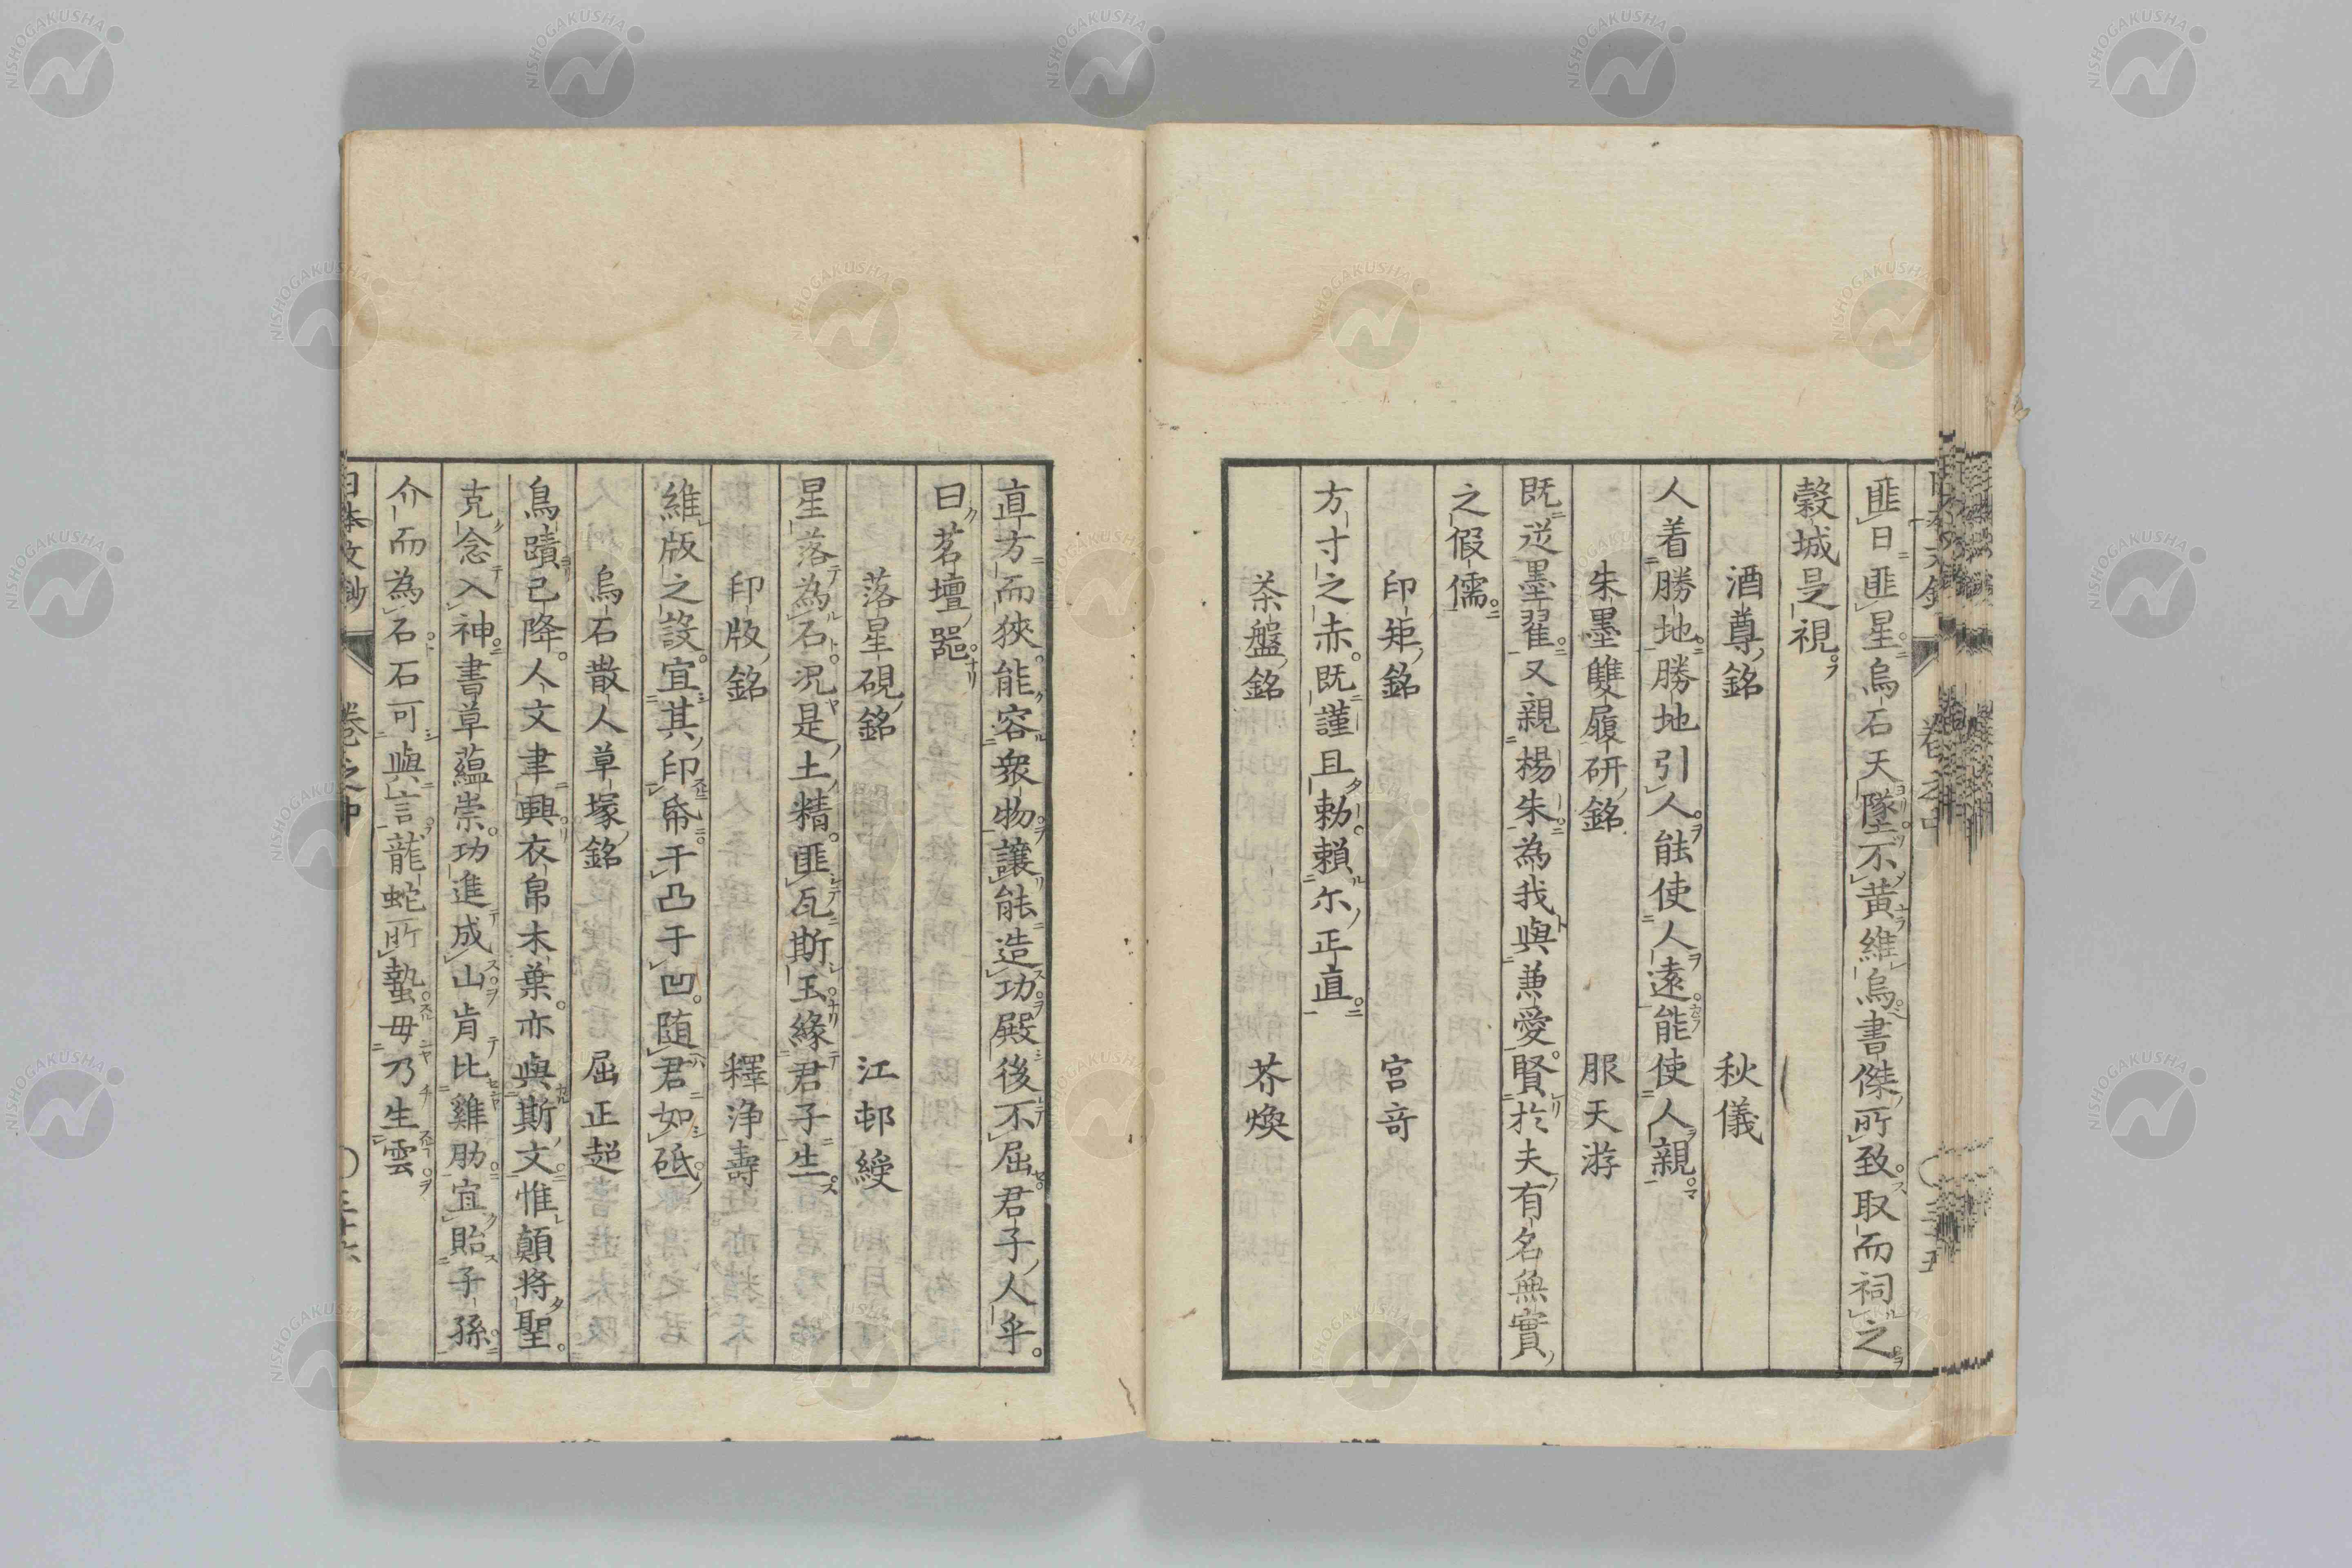 匪日匪星烏石天墜不黃維烏書傑所致取而祠之
穀城是視
酒尊銘 秋儀
人着勝地勝地引人能使人遠能使人親
朱墨雙履研銘 服天游
既逆墨翟又親楊朱為我與兼愛賢於夫有名無實
之假儒
印矩銘 宮奇
方寸之赤既謹且勅賴尓正直
茶盤銘 芥煥
直方而狹能容衆物讓能造功殿後不屈君子人乎
曰茗壇器
落星硯銘 江邨綬
星落為石況是土精匪瓦斯玉緣君子生
印版銘 釋浄壽
維版之設宜其印帋干凸于凹随君如砥
烏石散人草塚銘 屈正超
鳥蹟已降人文聿興衣帛木葉亦與斯文惟顛将聖
克念入神書草蘊崇功進成山肯比雞肋宜貽子孫
介而為石石可與言龍蛇所蟄毋乃生雲
日本文鈔 卷之中 三十六
NISHOGAKUSHA